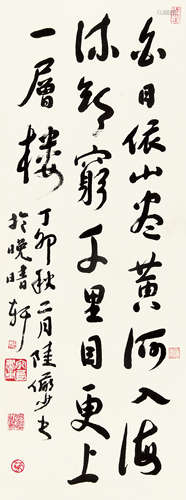 白日依山尽黄河入海
流欲窮千里目更上
一層樓
丁卯秋月陸儼少书
於晚晴軒